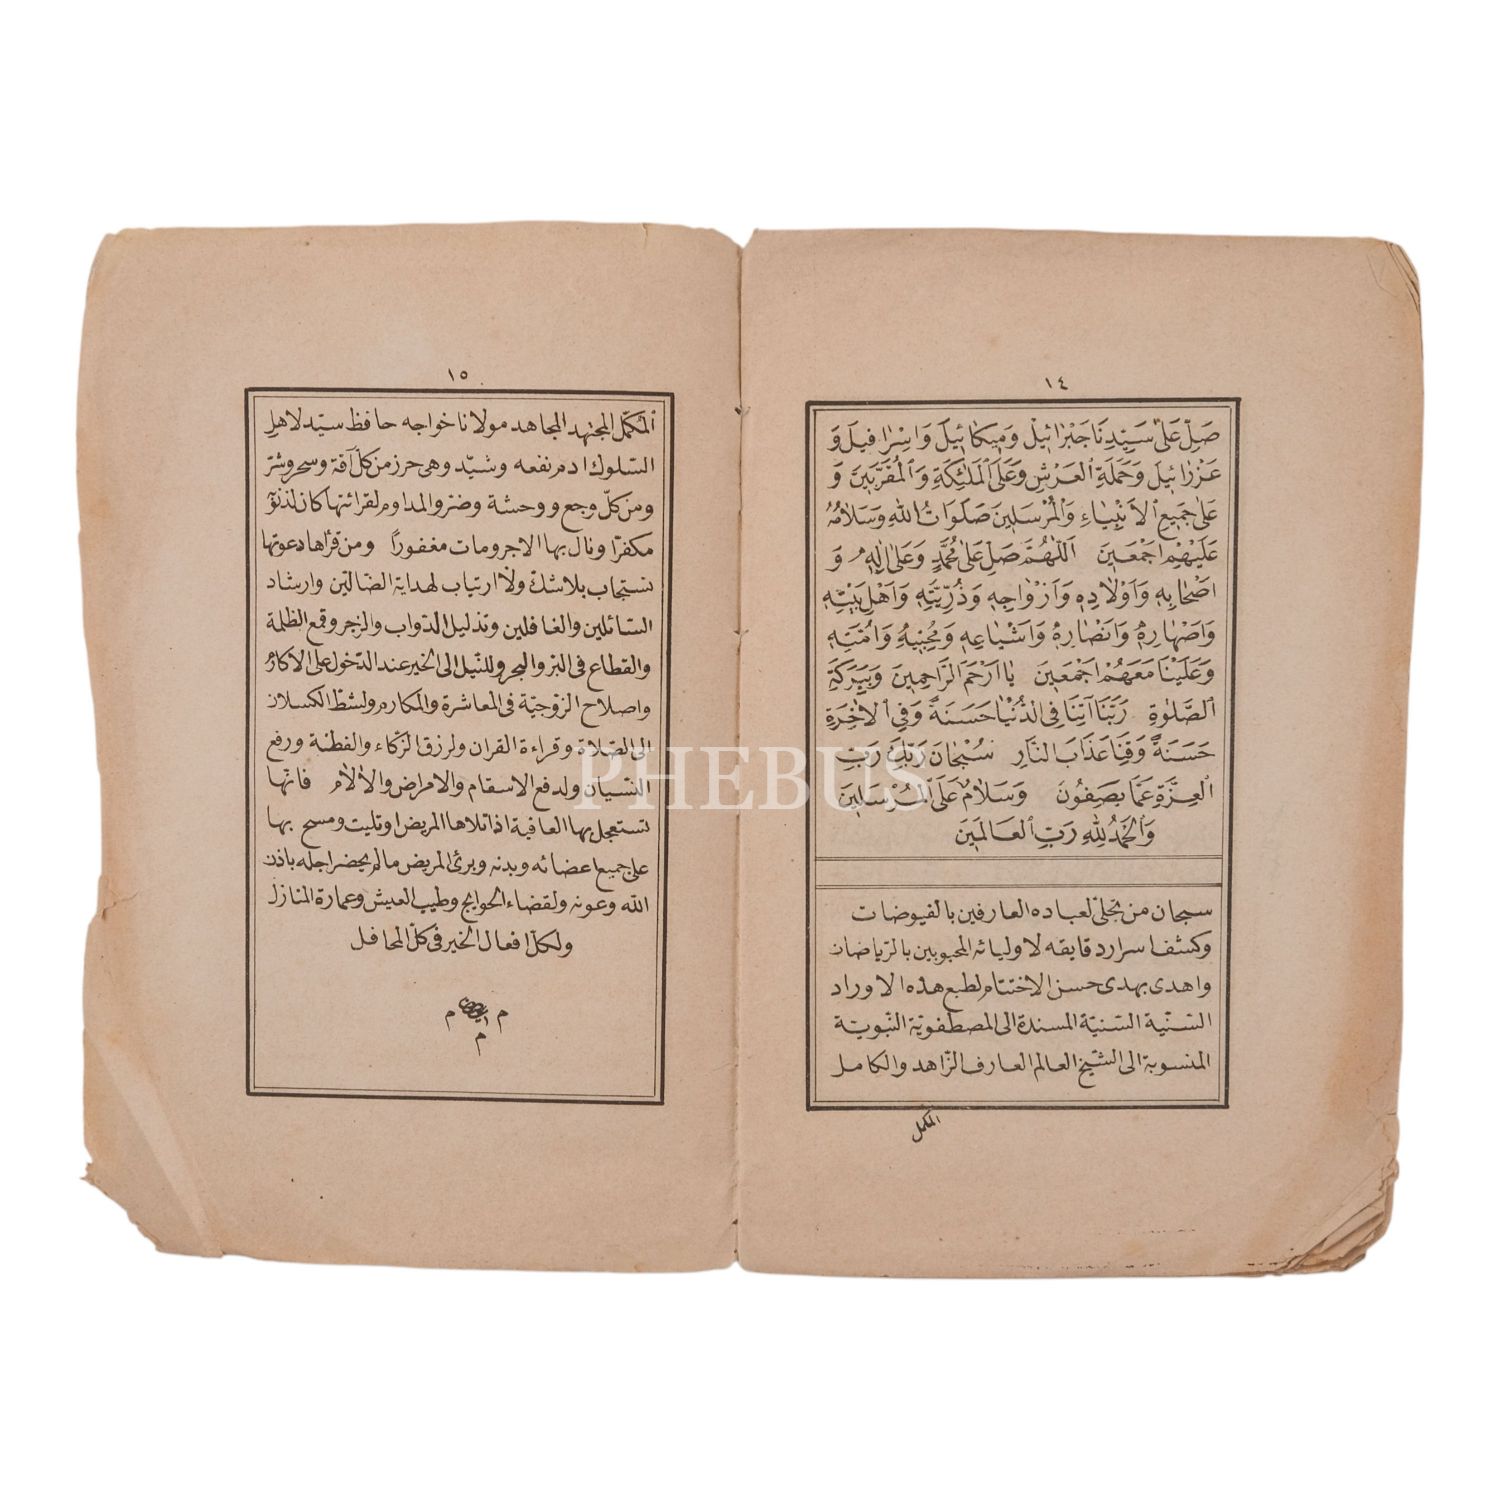 ١٤
صَلِّ عَلَىٰ سَيِّدِنَا جَبْرَائِيلَ وَمِيكَائِيلَ وَاِسْرَافِيلَ وَ
عَزْرَائِيلَ وَحَمَلَةِ الْعَرْشِ وَعَلَى الْمَلٰئِكَةِ وَالْمُقَرَّبِينَ وَ
عَلٰى جَمِيعِ الْاَنْبِيَاءِ وَالْمُرْسَلِينَ صَلَوَاتُ اللهِ وَسَلَامُهُ
عَلَيْهِمْ اَجْمَعِينَ اَللّٰهُمَّ صَلِّ عَلٰى مُحَمَّدٍ وَعَلٰى اٰلِهِ وَ
اَصْحَابِهِ وَاَوْلَادِهِ وَاَزْوَاجِهِ وَذُرِّيَّتِهِ وَاَهْلِ بَيْتِهِ
وَاَصْهَارِهِ وَاَنْصَارِهِ وَاَشْيَاعِهِ وَمُحِبِّيهِ وَاُمَّتِهِ
وَعَلَيْنَا مَعَهُمْ اَجْمَعِينَ يَا اَرْحَمَ الرَّاحِمِينَ وَبِبَرَكَةِ
الصَّلٰوةِ رَبَّنَا اٰتِنَا فِي الدُّنْيَا حَسَنَةً وَفِي الْاٰخِرَةِ
حَسَنَةً وَقِنَا عَذَابَ النَّارِ سُبْحَانَ رَبِّكَ رَبِّ
الْعِزَّةِ عَمَّا يَصِفُونَ وَسَلَامٌ عَلَى الْمُرْسَلِينَ
وَالْحَمْدُ لِلّٰهِ رَبِّ الْعَالَمِينَ
سبحان من تجلى لعباده العارفين بالفيوضات
وكشف اسرار دقايقه لاوليائه المحبوبين بالرياضات
واهدى بهدى حسن الاختتام لطبع هذه الاوراد
السّنّية السّنيّة المسندة الى المصطفويّة النّبويّة
المنسوبة الى الشّيخ العالم العارف الزّاهد والكامل
المكمل
١٥
المكمّل المجتهد المجاهد مولانا خواجه حافظ سيّد لاهل
السّلوك ادم نفعه وشيّد وهى حرز من كلّ آفة وسحر وشرّ
ومن كلّ وجع ووحشة وضرّ والمداوم لقرائتها كان لذنوٓ
مكفرًا ونال بها الاجر ومات مغفورًا ومن قرأها دعوتها
تستجاب بلاشكّ ولا ارتياب لهداية الضالّين وارشاد
السائلين والغافلين وتذليل الدّواب والزّجر وقمع الظّلمة
والقطاع فى البرّ والبحر وللنّيل الى الخير عند الدّخول على الاكابر
واصلاح الزّوجيّة فى المعاشرة والمكارم ولنشط الكسلان
الى الصّلاة وقراءة القران ولرزق الزّكاء والفطنة ورفع
النّسيان ولدفع الاسقام والامراض والآلام فانّها
تستعجل بها العافية اذا تلاها المريض او تليت ومسح بها
على جميع اعضائه وبدنه وبرئ المريض مالم يحضر اجله باذن
الله وعونه ولقضاء الحوايج وطيب العيش وعمارة المنازل
ولكلّ افعال الخير فى كلّ المحافل
م م
م
PHEBUS